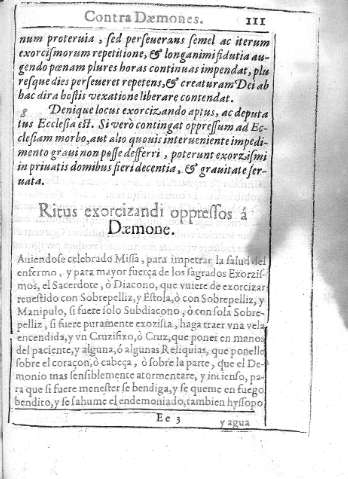 Contra Dæmones. 111
num proteruia, sed perseuerans semel ac iterum
exorcismorum repetitione, & longanimi fidutia au-
gendo pœnam plures horas continuas impendat, plu
resque dies perseueret repetens, & creaturam Dei ab
hac dira bestii vexatione liberare contendat.
8 Denique locus exorcizando aptus, ac deputa
tus Ecclesia est. Si verò contingat oppressum ad Ec-
clesiam morbo, aut alio quouis interueniente impedi-
mento graui non posse defferri, poterunt exorzismi
in priuatis domibus fieri decentia, & grauitate ser-
uata.
Ritus exorcizandi oppressos á
Dæmone.
Auiendose celebrado Missa, para impetrar la salud del
enfermo, y para mayor fuerça de los sagrados Exorzis-
mos, el Sacerdote, ò Diacono, que vuiere de exorcizar
reuestido con Sobrepelliz, y Estola, ò con Sobrepelliz, y
Manipulo, si fuere solo Subdiacono, ò con sola Sobre-
pelliz, si fuere puramente exorzista, haga traer vna vela
encendida, y vn Cruzifixo, ò Cruz, que poner en manos
del paciente, y alguna, ó algunas Reliquias, que ponelle
sobre el coraçon, ò cabeça, ò sobre la parte, que el De-
monio mas sensiblemente atormentare, y incienso, pa-
ra que si fuere menester se bendiga, y se queme en fuego
bendito, y se sahume el endemoniado, tambien hyssopo
Ee 3 y agua